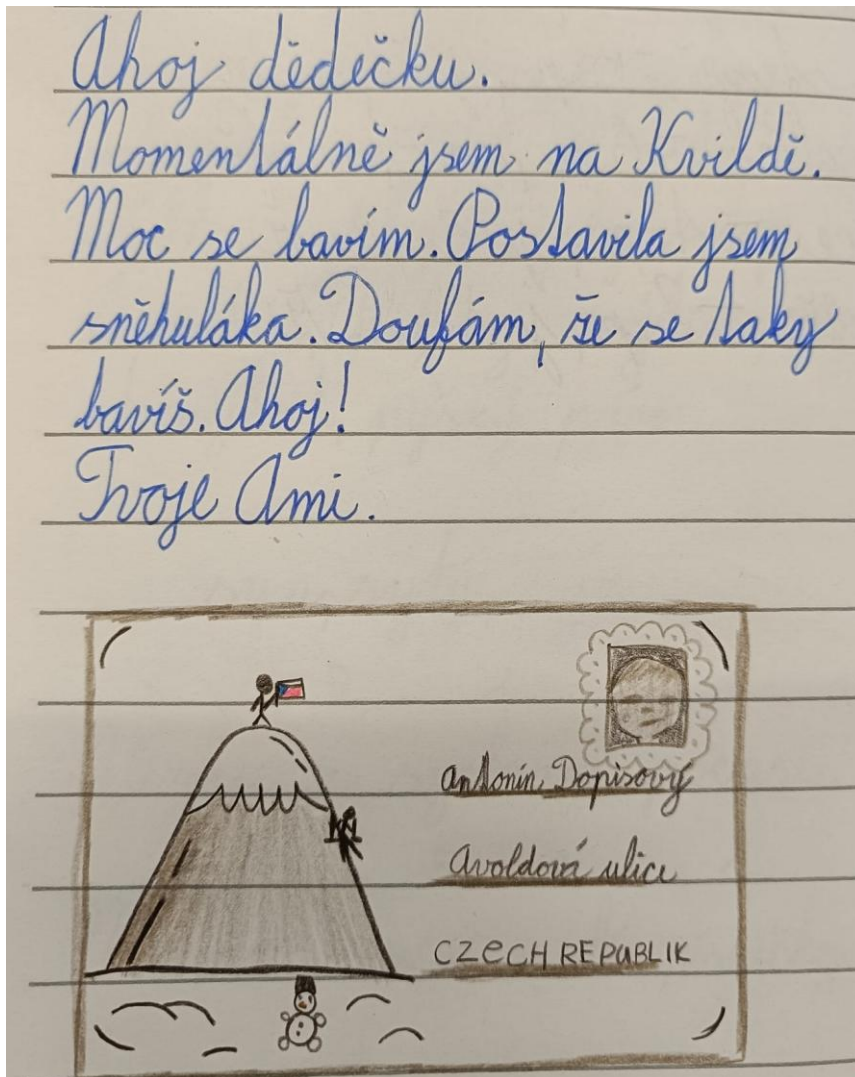 Ahoj dědečku.
Momentálně jsem na Kvildě.
Moc se bavím. Postavila jsem
sněhuláka. Doufám, že se taky
bavíš. Ahoj!
Tvoje Ami.
Antonín Dopisový
Avoldová ulice
CZECH REPUBLIK